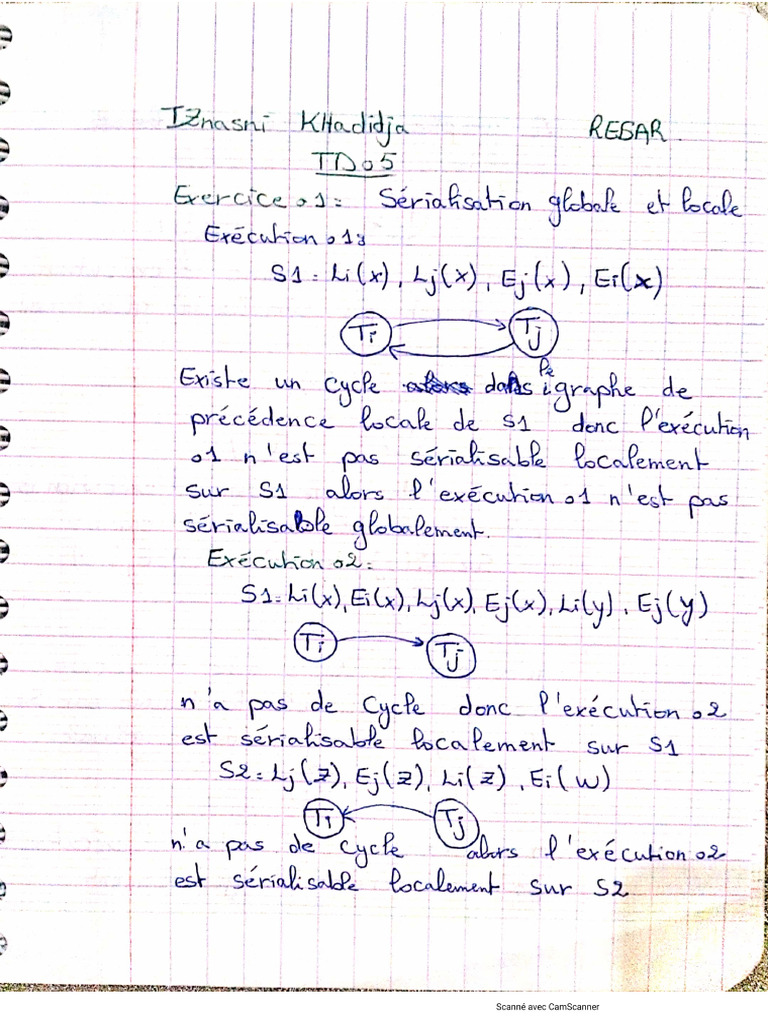 IZnasni KHadidja RESAR
TD05
Exercice 01: Sérialisation globale et locale
Exécution 01:
S1: Li(x), Lj(x), Ej(x), Ei(x)
Ti Tj
Existe un cycle dans le graphe de
précédence locale de S1 donc l'exécution
01 n'est pas sérialisable localement
sur S1 alors l'exécution 01 n'est pas
sérialisable globalement.
Exécution 02:
S1: Li(x), Ei(x), Lj(x), Ej(x), Li(y), Ej(y)
Ti Tj
n'a pas de cycle donc l'exécution 02
est sérialisable localement sur S1
S2: Lj(z), Ej(z), Li(z), Ei(w)
Ti Tj
n'a pas de cycle alors l'exécution 02
est sérialisable localement sur S2
Scanné avec CamScanner